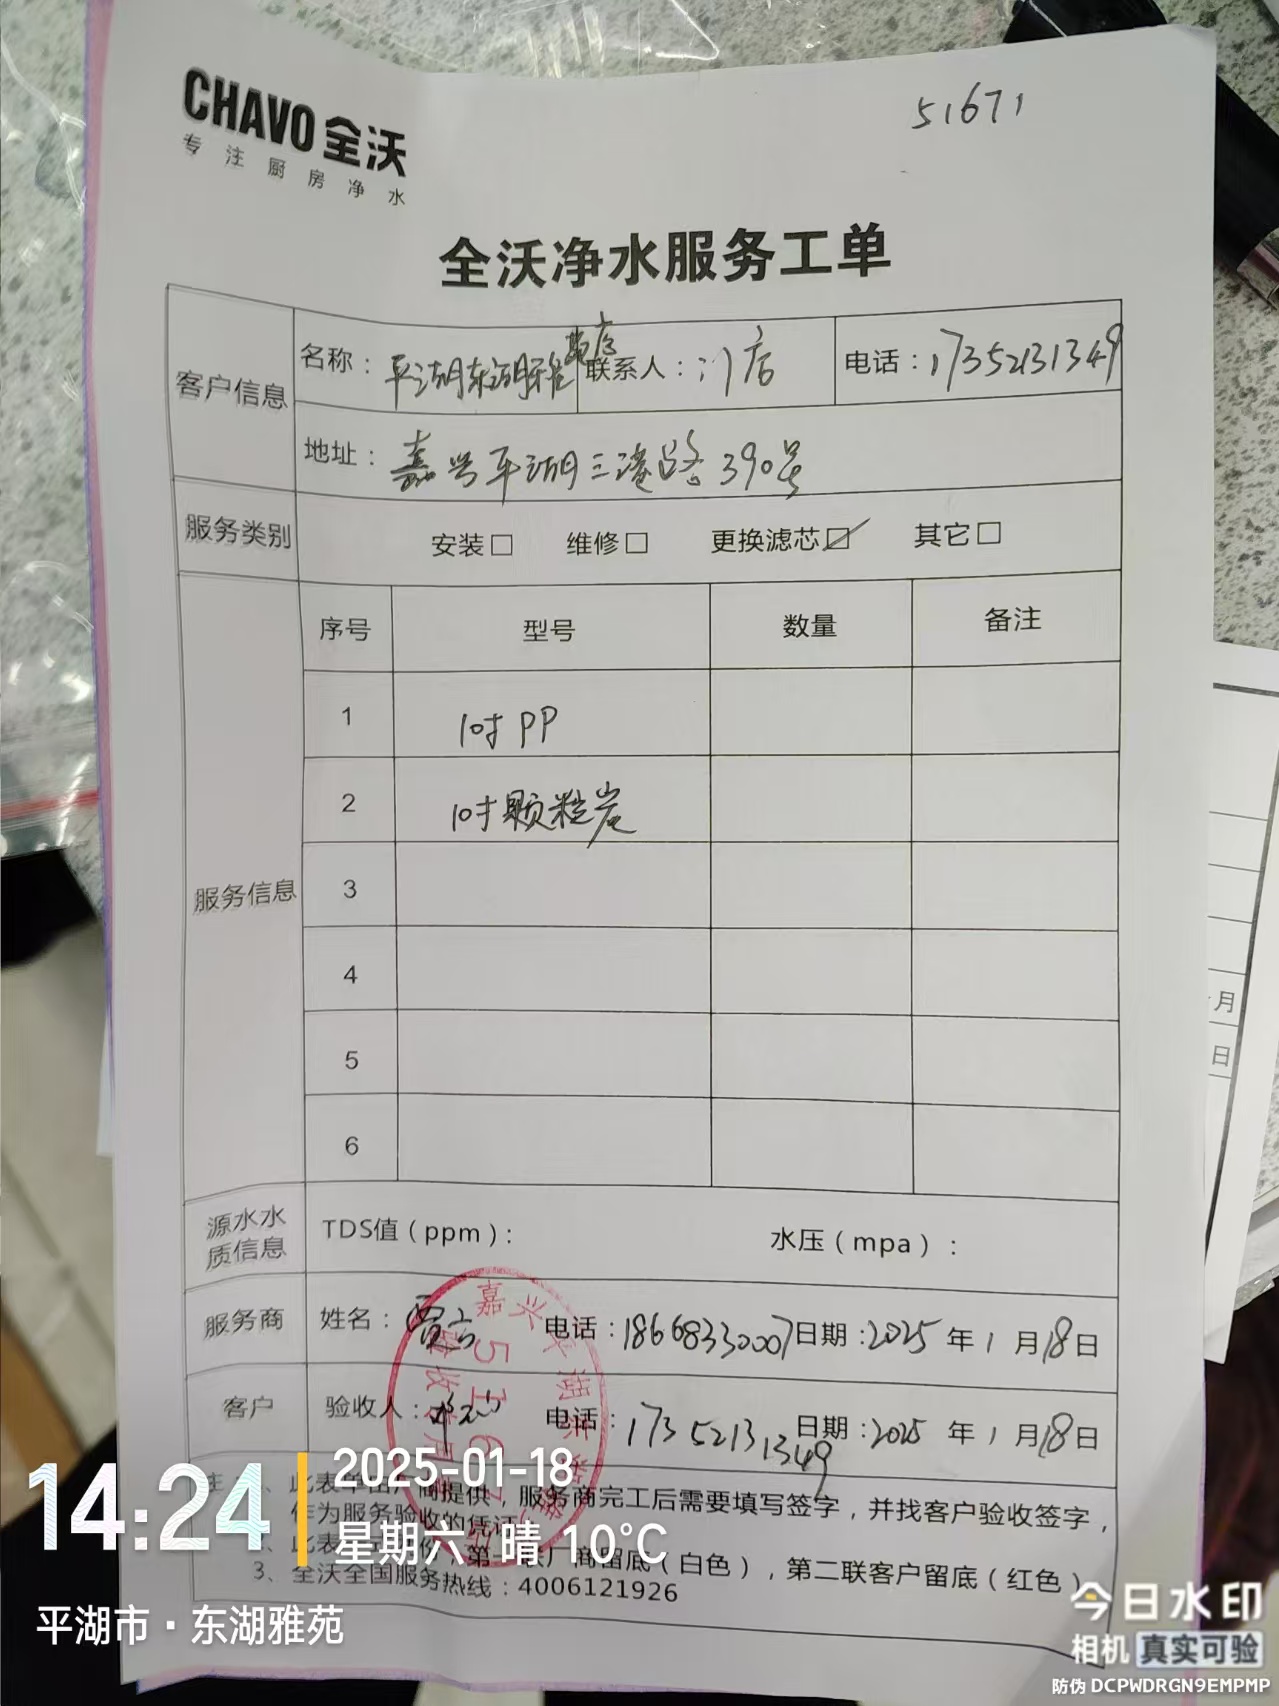 CHAVO 全沃
专注厨房净水
51671
全沃净水服务工单
客户信息
名称：平湖东湖雅苑店
联系人：门店
电话：17352131349
地址：嘉兴平湖三港路390号
服务类别
安装□ 维修□ 更换滤芯☑ 其它□
服务信息
序号 型号 数量 备注
1 10寸PP
2 10寸颗粒炭
3
4
5
6
源水水质信息
TDS值（ppm）： 水压（mpa）：
服务商 姓名： 电话：18668330007 日期：2025年1月18日
客户 验收人： 电话：17352131349 日期：2025年1月18日
厂商提供，服务商完工后需要填写签字，并找客户验收签字，
作为服务验收的凭证
厂商留底（白色），第二联客户留底（红色）
3、全沃全国服务热线：4006121926
嘉兴平湖
51671
验收专用
14:24
2025-01-18
星期六 晴 10°C
平湖市·东湖雅苑
今日水印
相机 真实可验
防伪 DCPWDRGN9EMPMP
月
日